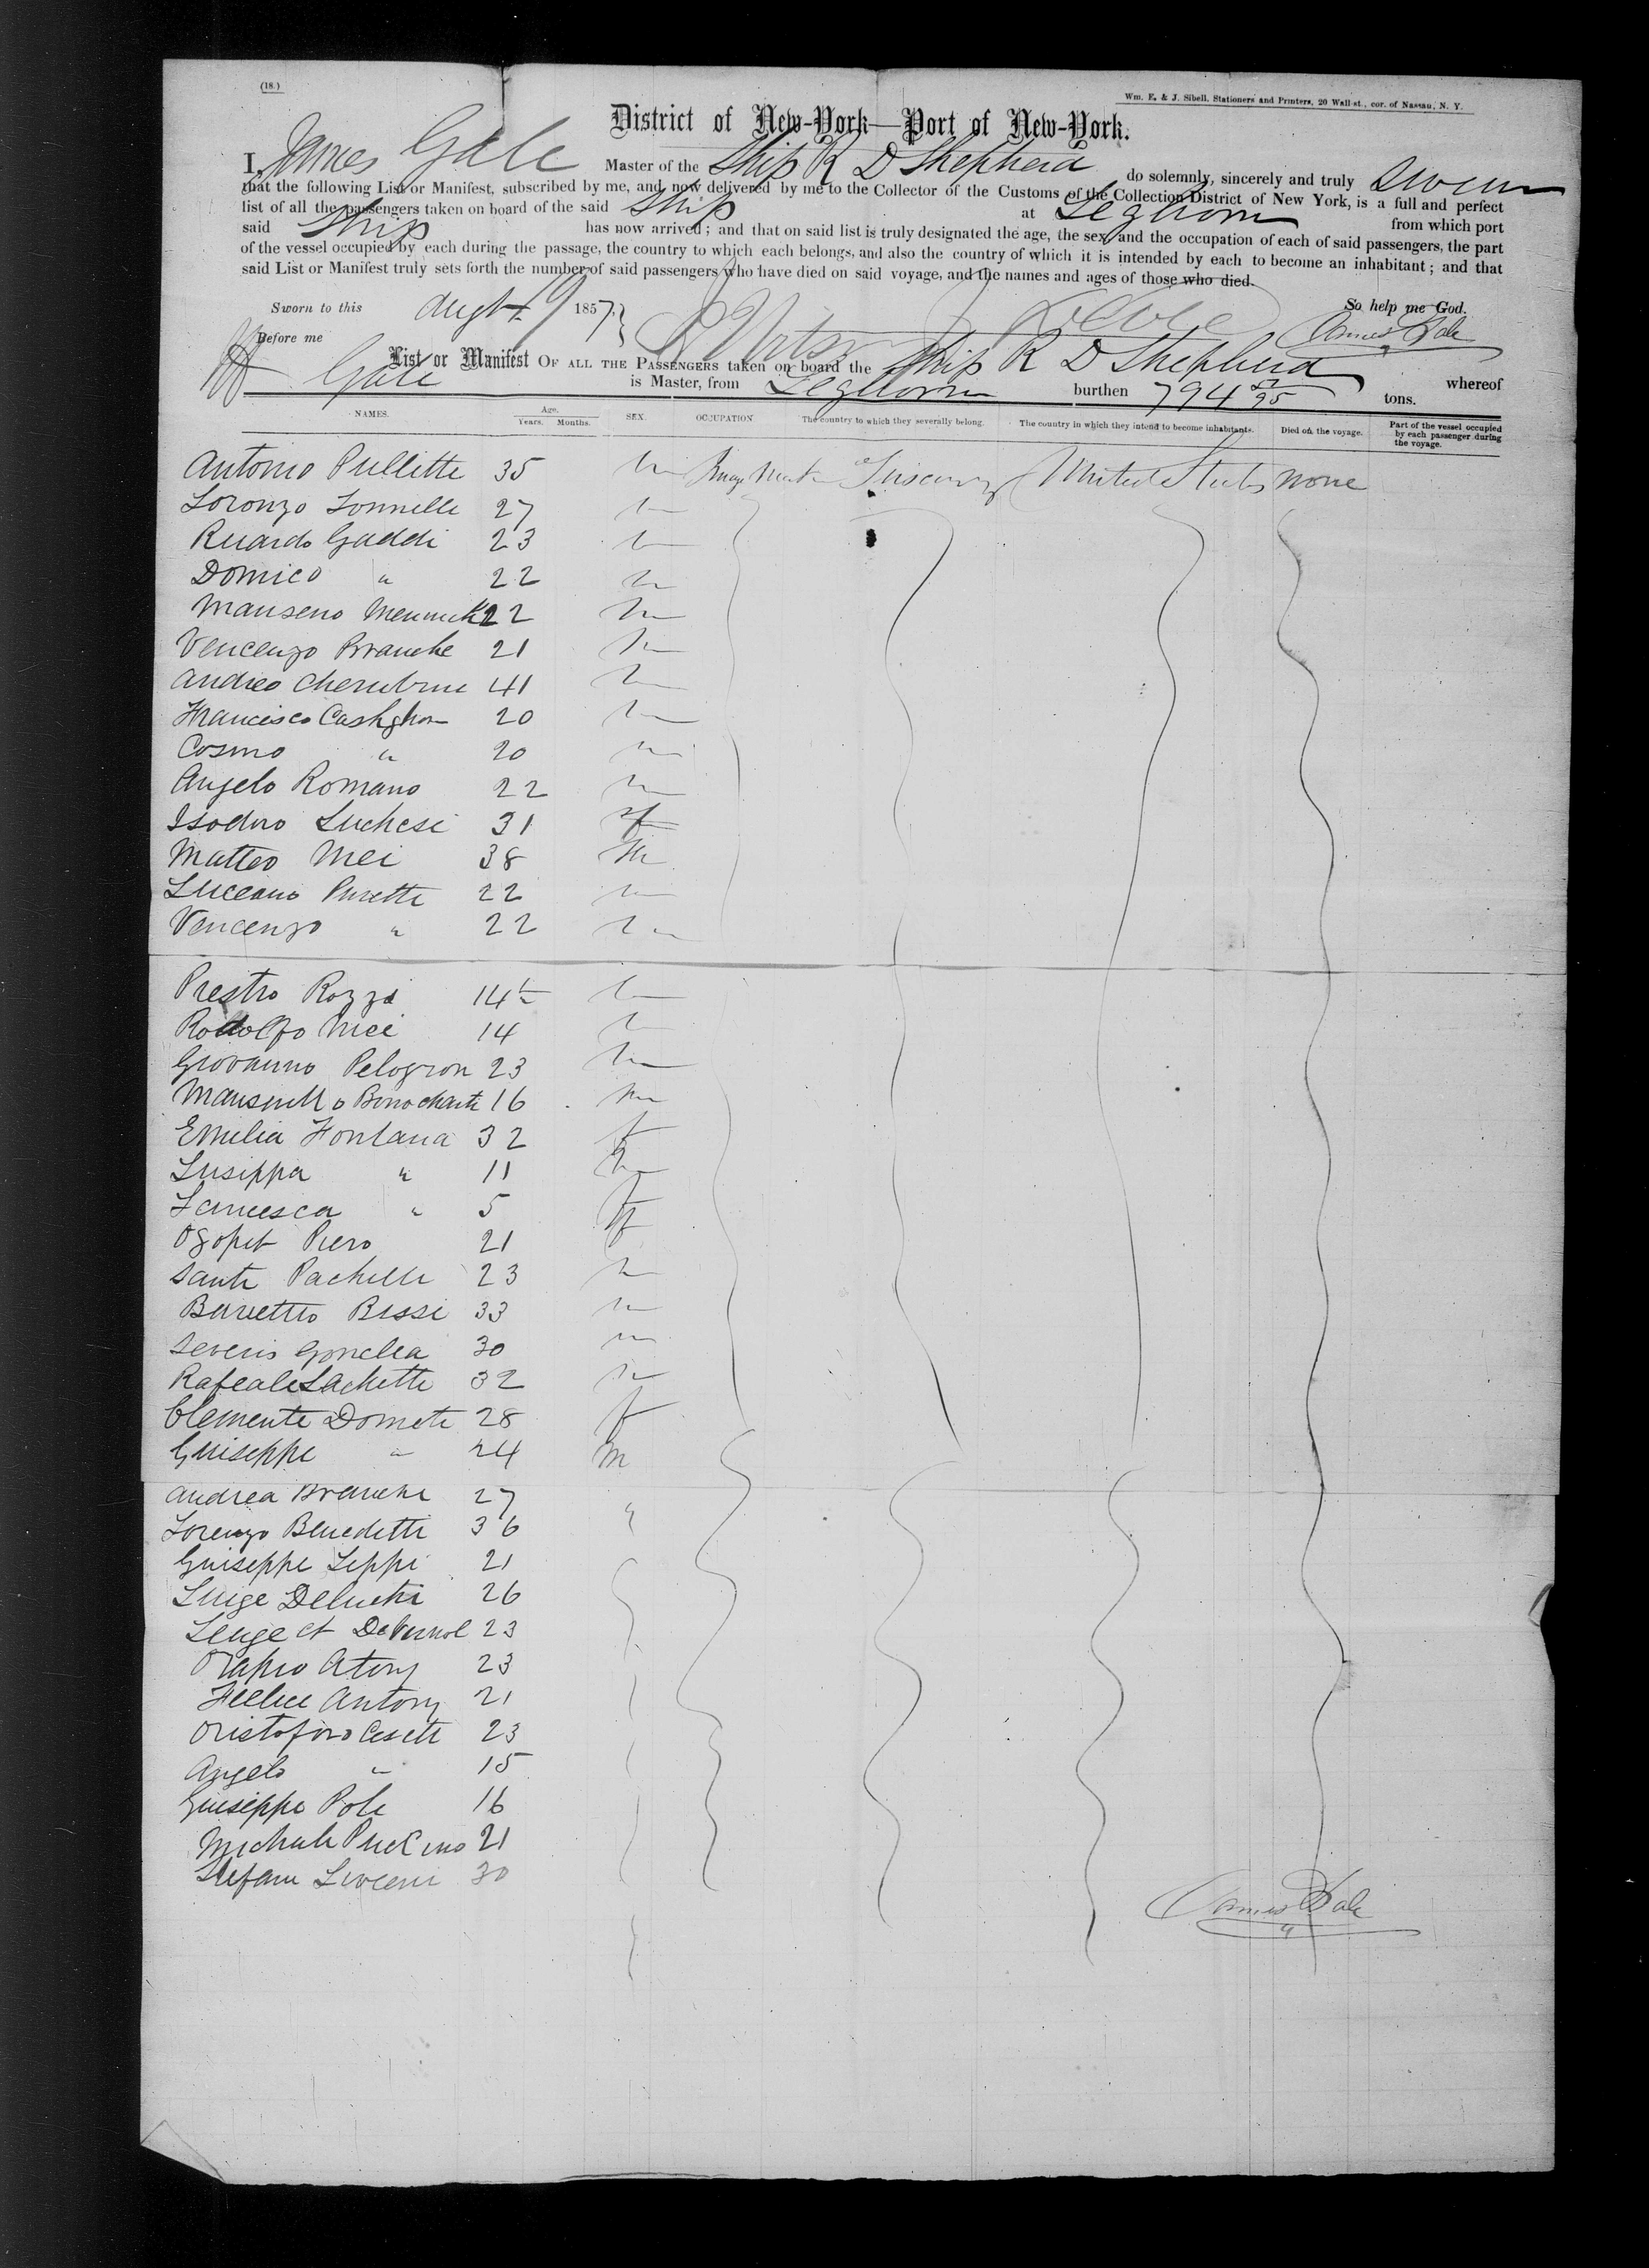 (18.)
Wm. E. & J. Sibell, Stationers and Printers, 20 Wall-st., cor. of Nassau, N. Y.
District of New-York—Port of New-York.
I, James Gale Master of the Ship R D Shepherd do solemnly, sincerely and truly swear
that the following List or Manifest, subscribed by me, and now delivered by me to the Collector of the Customs of the Collection District of New York, is a full and perfect
list of all the passengers taken on board of the said Ship at Leghorn from which port
said Ship has now arrived; and that on said list is truly designated the age, the sex, and the occupation of each of said passengers, the part
of the vessel occupied by each during the passage, the country to which each belongs, and also the country of which it is intended by each to become an inhabitant; and that
said List or Manifest truly sets forth the number of said passengers who have died on said voyage, and the names and ages of those who died.
So help me God.
Sworn to this Augt 19 1857
James Gale
Before me
List or Manifest OF ALL THE PASSENGERS taken on board the Ship R D Shepherd whereof
Gale is Master, from Leghorn burthen 794 /95 tons.
NAMES. Age. Years. Months. SEX. OCCUPATION The country to which they severally belong. The country in which they intend to become inhabitants. Died on the voyage. Part of the vessel occupied by each passenger during the voyage.
Antonio Pullitte 35 m Tuscany United States none
Loronzo Tonnelli 27 m
Ricardo Gaddi 23 m
Domico " 22 m
Manseno 22 m
Vencenzo Branche 21 m
Andreo Cherubini 41 m
Francisco Castighon 20 m
Cosmo " 20 m
Angelo Romano 22 m
Isodoro Luchesi 31
Matteo Mei 38 m
Luceano Puretti 22 m
Vencenzo " 22 m
Prestro Rozzi 14 m
Rodolfo Mei 14 m
Giovanno Pelogron 23 m
16 m
Emilia Fontana 32 f
Lusippa " 11
Francesca " 5 f
Piero 21
Santi Pachelli 23 m
Bissi 33 m
Severis Gonclea 30 m
Rafeale Lachetti 32 m
Clemente Dometi 28 f
Guiseppe " 24 m
Andrea Branchi 27 "
Lorenzo Benedetti 36
Guiseppe Leppi 21
Luige Deluchi 26
23
Orapio Atony 23
Felice Antony 21
Oristoforo Cesetti 23
Angelo " 15
Guiseppe Pole 16
Michale 21
Stefani 30
James Gale